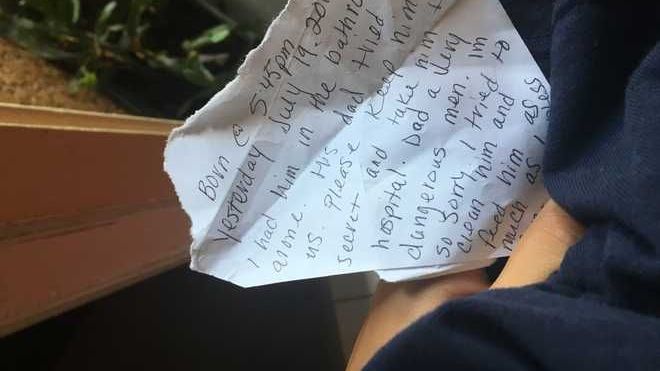 Born @ 5:45pm
Yesterday July 19. 20
I had him in the bathro
alone. His dad tried
us. Please Keep him
secret and take him t
hospital. Dad a Very
dangerous men. im
so sorry I tried to
clean him and
feed him as
much as I